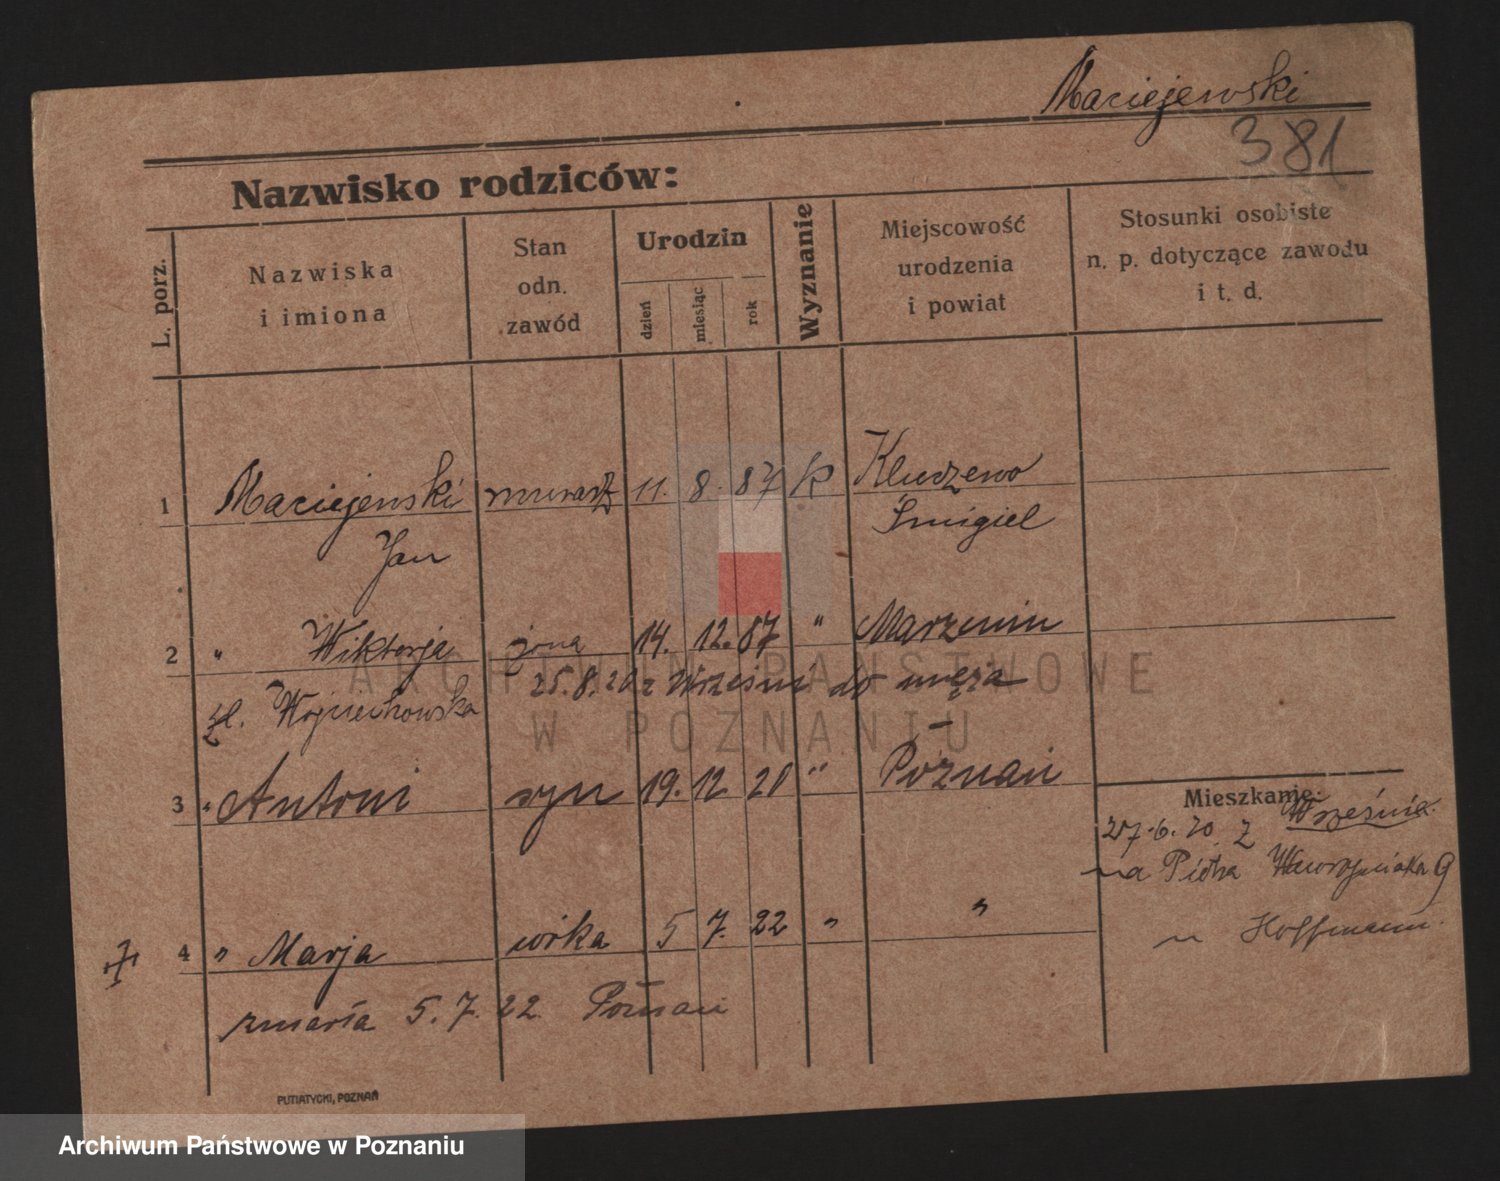 Maciejewski
381
Nazwisko rodziców:
L. porz.
Nazwiska
i imiona
Stan
odn.
zawód
Urodzin
dzień
miesiąc
rok
Wyznanie
Miejscowość
urodzenia
i powiat
Stosunki osobiste
n. p. dotyczące zawodu
i t. d.
1 Maciejewski murarz 11. 8. 87 k Kluczewo
Jan Śmigiel
2 " Wiktorja żona 14. 12. 87 " Marzenin
zd. Wojciechowska 25.8.20 z Wrześni do męża
3 " Antoni syn 19. 12 20 " Poznań
Mieszkanie:
27.6.20 z Wrześnie.
na Piotra Wawrzyniaka 9
u Hoffmann.
4 " Marja córka 5 7. 22 " "
zmarła 5.7.22. Poznań
PUTIATYCKI, POZNAŃ
ARCHIWUM PAŃSTWOWE
W POZNANIU
Archiwum Państwowe w Poznaniu